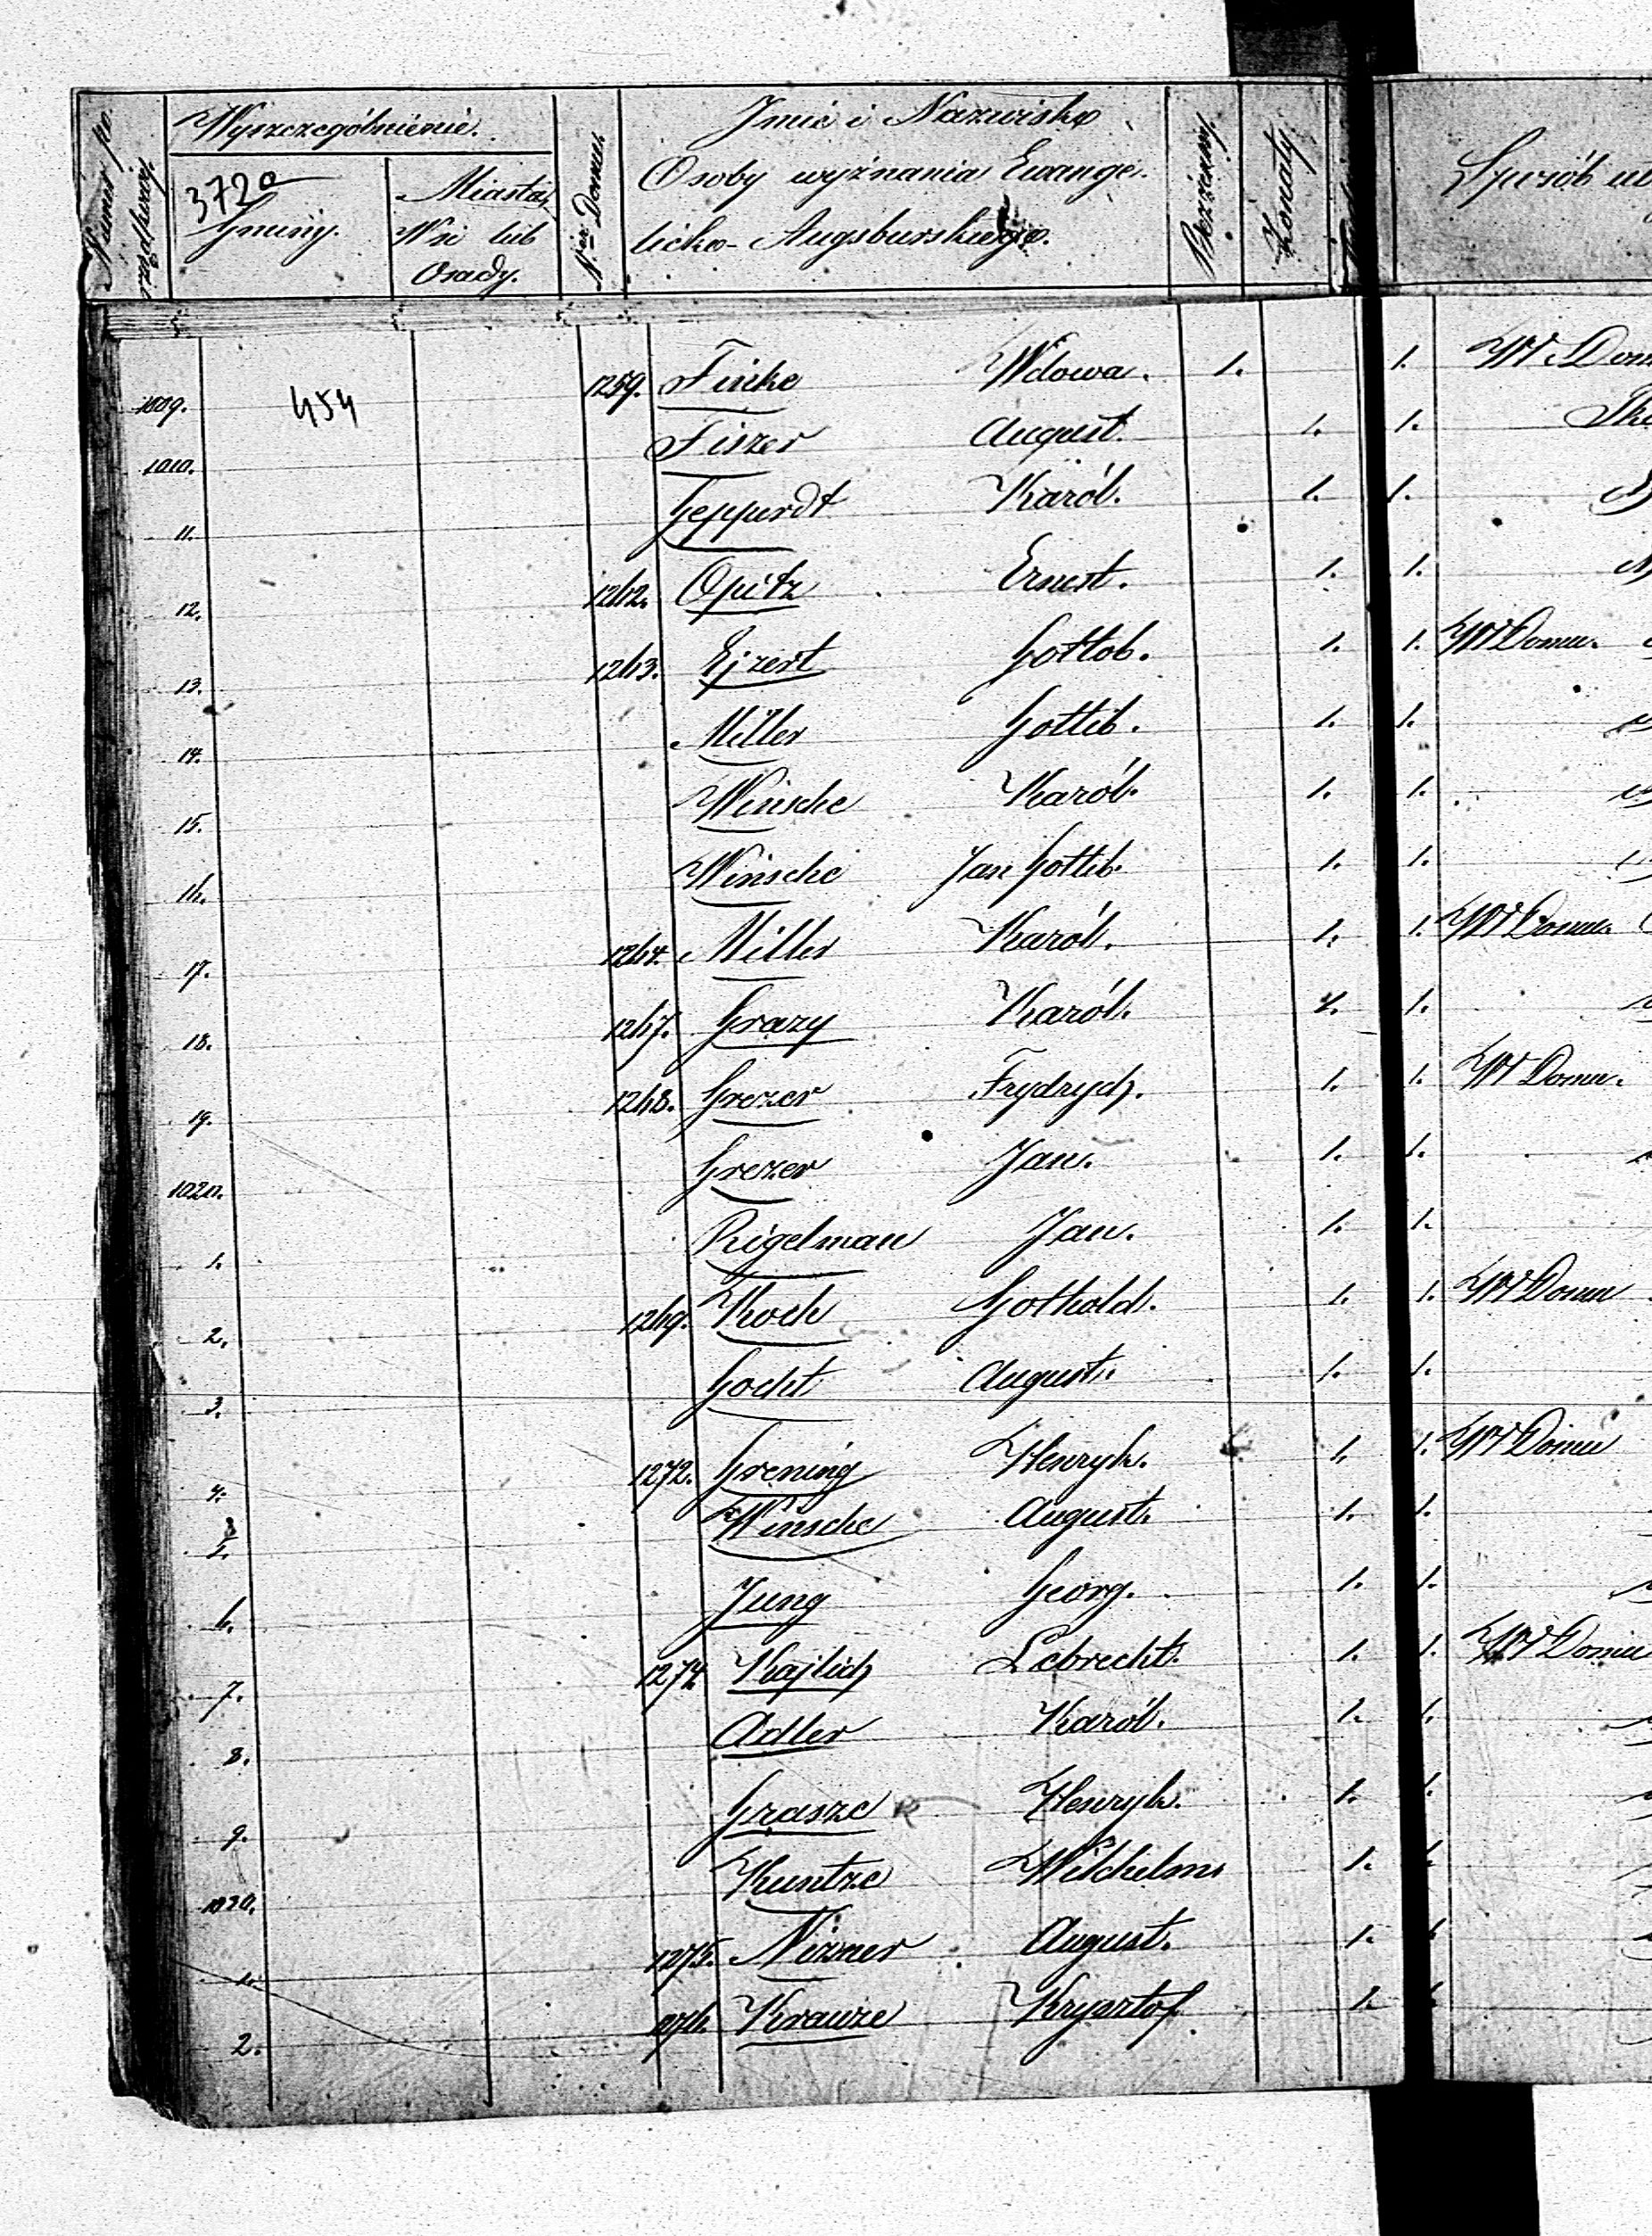 Numer po rządkowy
Wyszczególnienie.
372a
Gminy.
Miasta,
Wsi lub
Osady.
Ner Domu.
Jmie i Nazwisko
Osoby wyznania Ewange-
licko-Augsburskiego.
Bezżenny.
Żonaty.
Sposób
1009. 454 1259. Finke Wdowa. 1. 1. W Dom
1010. Fiszer August. 1. 1.
11. Geppardt Karól. 1. 1.
12. 1262. Opitz Ernest. 1. 1.
13. 1263. Ejzert Gottlob. 1. 1. W Domu.
14. Miller Gottlib. 1. 1.
15. Winsche Karól. 1. 1.
16. Winsche Jan Gottlib. 1. 1.
17. 1264. Miller Karól. 1. 1. W Domu
18. 1267. Grazy Karól. 1. 1.
19. 1268. Grezer Frydrych. 1. 1. W Domu.
1020. Grezer Jan. 1. 1.
1. Rigelman Jan. 1. 1.
2. 1269. Koch Gothold. 1. 1. W Domu
3. Gocht August. 1. 1.
4. 1272. Grening Henryk. 1. 1. W Domu
5. Winsche August. 1. 1.
6. Jung Georg. 1. 1.
7. 1274 Kajlich Lebrecht. 1. 1. W Domu
8. Adler Karól. 1. 1.
9. Grasze Henryk. 1. 1.
1030. Kuntze Wilchelm 1. 1.
1. 1275. Nixner August. 1.
2. 1276. Krauze Krysztof 1.